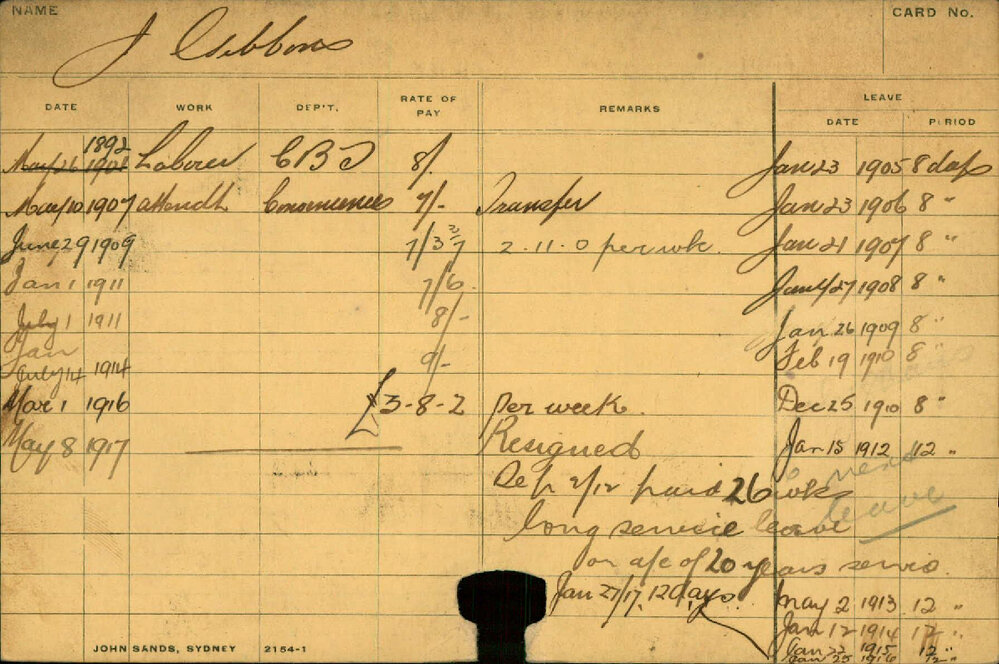 NAME
J Gibbons
CARD No.
DATE WORK DEP'T. RATE OF PAY REMARKS LEAVE
DATE PERIOD
1892
May 26 1901 Laborer CBD 8/. Jan 23 1905 8 days
May 10 1907 attendt Conveniences 7/- Transfer Jan 23 1906 8 "
June 29 1909 7/3 2/7 2.11.0 per wk. Jan 21 1907 8 "
Jan 1 1911 7/6 Jan 27 1908 8 "
July 1 1911 8/- Jan 26 1909 8 "
Jan
July 14 1914 9/- Feb 19 1910 8 "
Mar 1 1916 £3-8-2 per week. Dec 25 1910 8 "
May 8 1917 Resigned Jan 15 1912 12 "
no next
leave
Dep 2/12 paid 26 wks
long service leave
on a/c of 20 years servic.
Jan 27/17, 12 days
May 2 1913 12 "
Jan 12 1914 12 "
Jan 22 1915 12 "
Jan 25 1916 12 "
JOHN SANDS, SYDNEY 2154-1